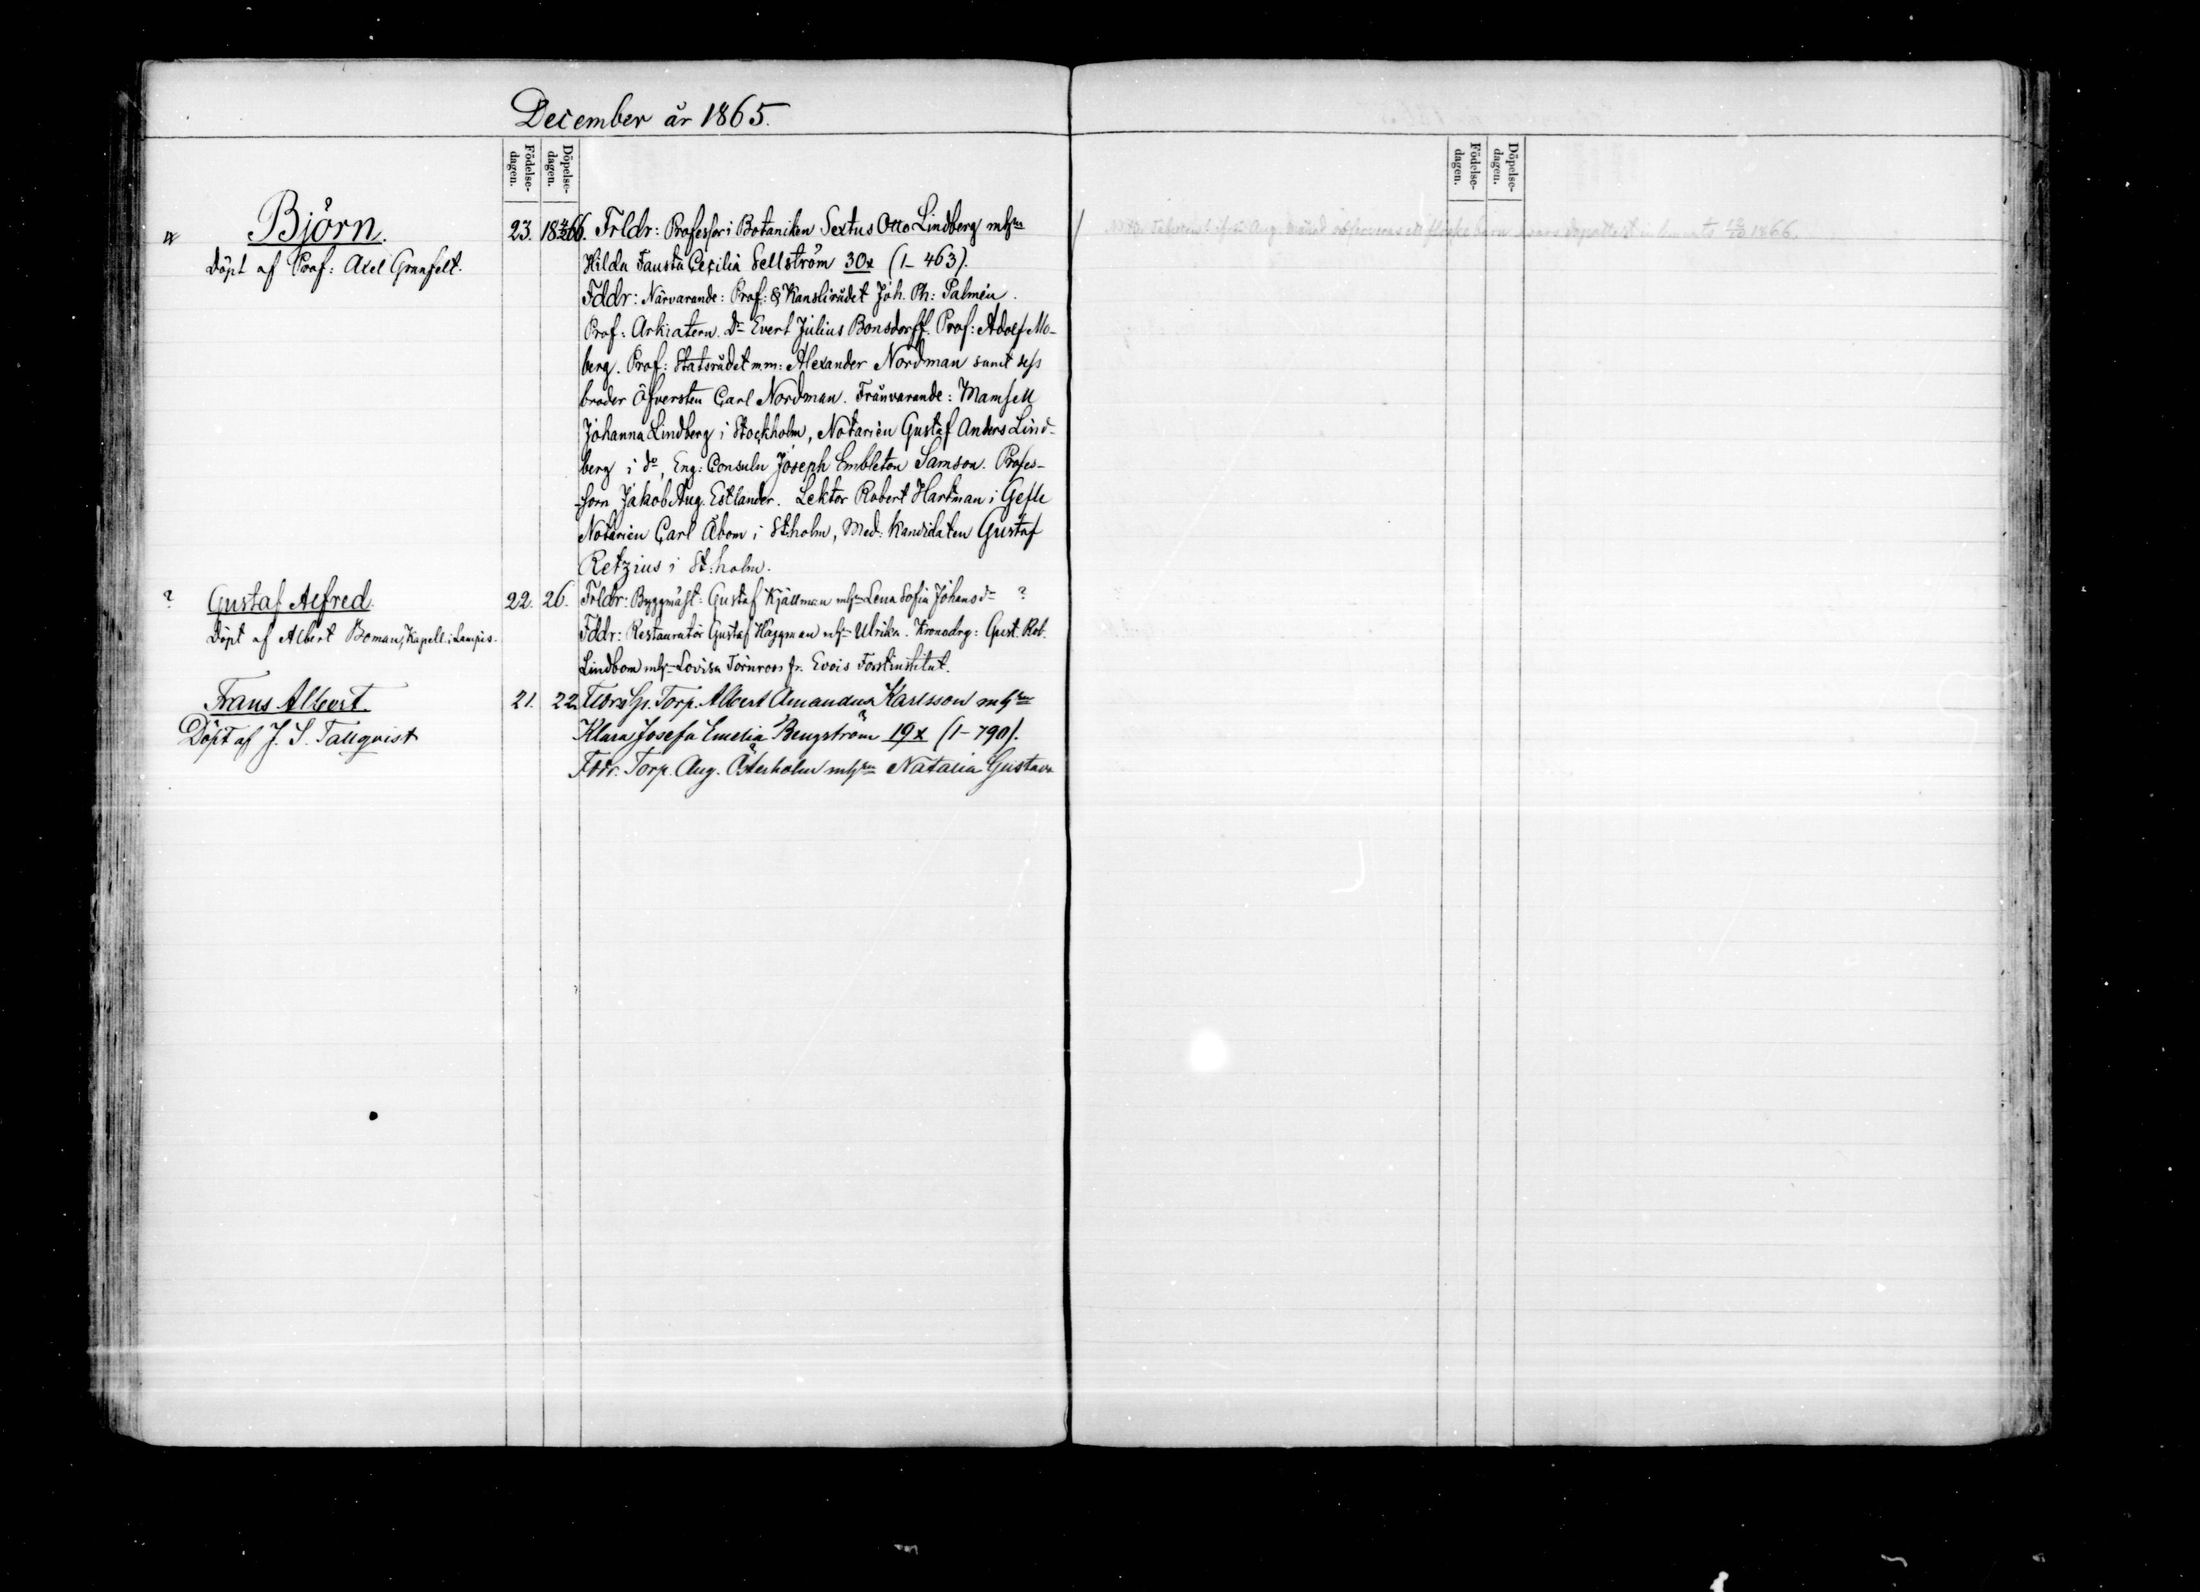 December år 1865.
Födelse-dagen.
Döpelse-dagen.
Björn.
Döpt af Prof: Axel Granfelt.
23. 18 66. Frldr: Professor i Botaniken Sextus Otto Lindberg mhu
Hilda Fausta Cecilia Sellström 30x (1–463).
Fddr: Närvarande: Prof: & Kanslirådet Joh. Ph: Palmén.
Prof: Arkiatern. Dr Evert Julius Bonsdorff. Prof: Adolf Mo-
berg. Prof: Statsrådet m.m: Alexander Nordman samt dess
broder Öfversten Carl Nordman. Frånvarande: Mamsell
Johanna Lindberg i Stockholm, Notarien Gustaf Anders Lind-
berg i do, Eng: Consuln Joseph Embleton Samson. Profes-
sorn Jakob Aug. Estlander. Lektor Robert Hartman i Gefle
Notarien Carl Åbom i St:holm, Med: Kandidaten Gustaf
Retzius i St:holm.
? Gustaf Alfred.
Döpt af Albert Boman, Kapell. i Lampis.
22. 26. Frldr: Byggmäst: Gustaf Kjällman mhu Lena Sofia Johansdr ?
Fddr: Restauratör Gustaf Häggman mhu Ulrika. Kronodrg: Gust. Rob.
Lindbom mhu Lovisa Törnroos fr. Evois Forstinstitut.
Frans Albert.
Döpt af J. S. Tallqvist
21. 22. Torp. Albert Amandus Karlsson mhu
Klara Josefa Emelia Bengström 19x (1–790).
Fddr. Torp. Aug. Österholm mhu Natalia Gustava
Födelse-dagen.
Döpelse-dagen.
Aug. 1866.